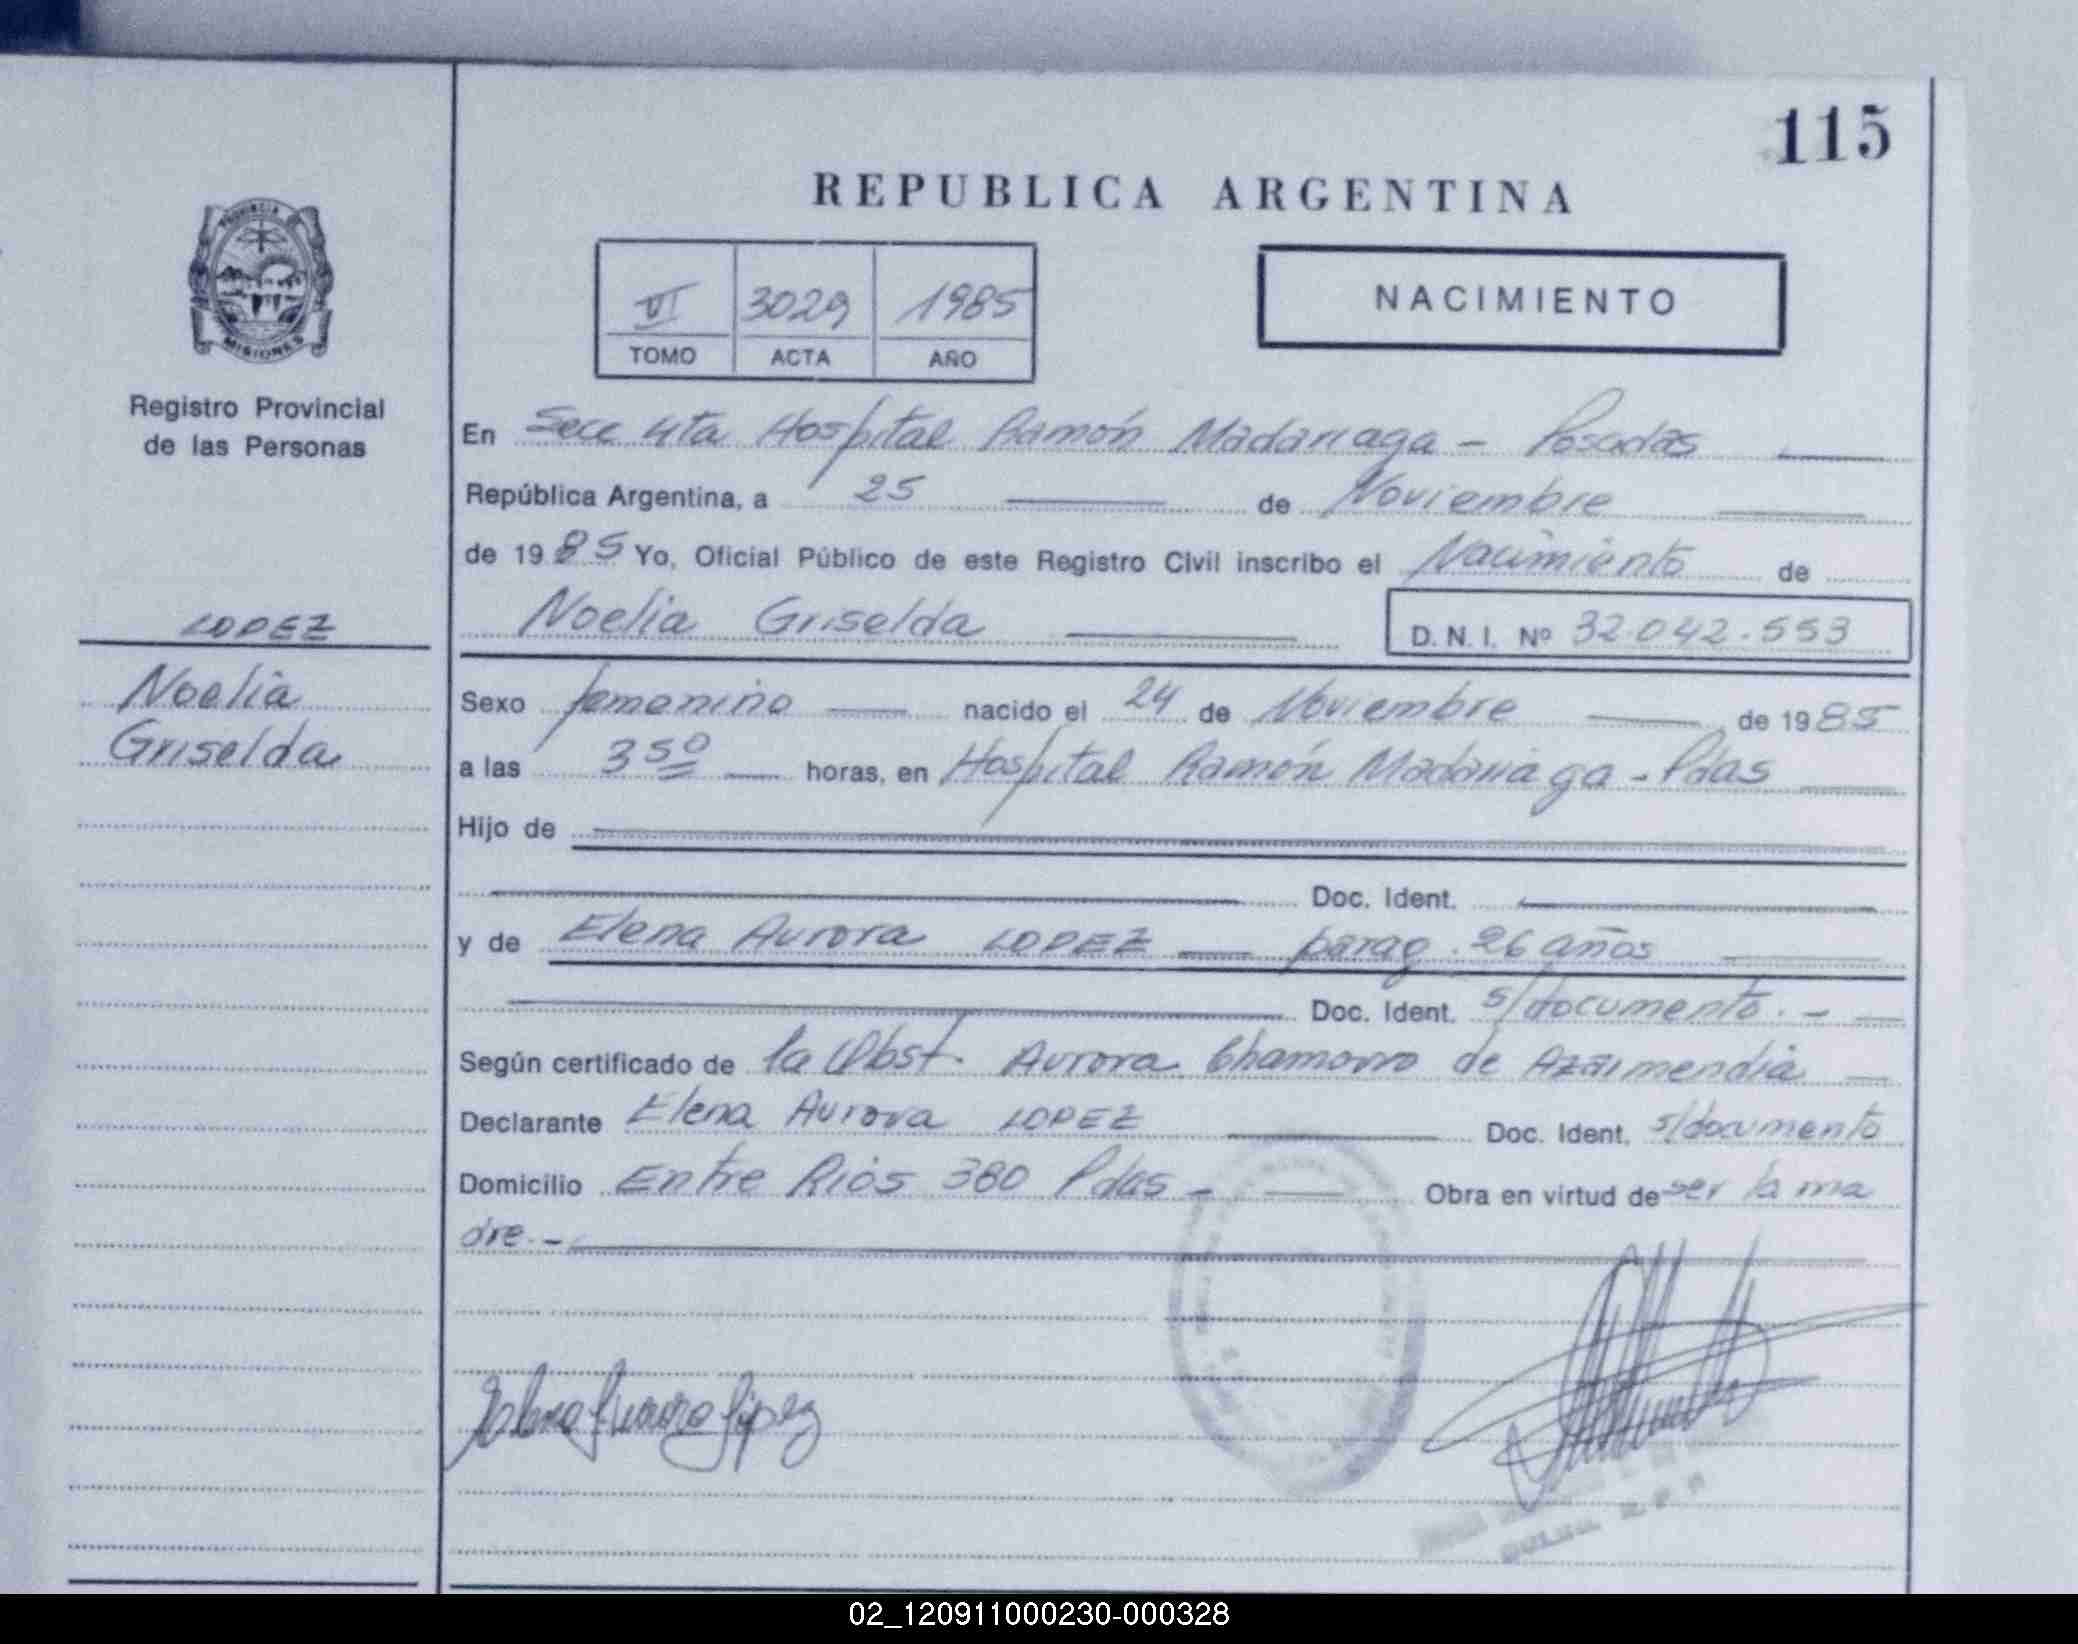 115
REPUBLICA ARGENTINA
PROVINCIA
MISIONES
VI 3029 1985
TOMO ACTA AÑO
NACIMIENTO
Registro Provincial
de las Personas
En Secc 4ta Hospital Ramón Madariaga - Posadas
República Argentina, a 25 de Noviembre
de 1985 Yo, Oficial Público de este Registro Civil inscribo el Nacimiento de
Noelia Griselda D. N. I. Nº 32.042.553
LOPEZ
Noelia
Griselda
Sexo femenino nacido el 24 de Noviembre de 1985
a las 3 50 horas, en Hospital Ramón Madariaga - Pdas
Hijo de
Doc. Ident.
y de Elena Aurora LOPEZ parag. 26 años
Doc. Ident. s/documento. -
Según certificado de la Obst. Aurora Chamorro de Azarmendia
Declarante Elena Aurora LOPEZ Doc. Ident. s/documento
Domicilio Entre Ríos 380 Pdas - Obra en virtud de ser la ma
dre. -
Elena Aurora López
02_120911000230-000328